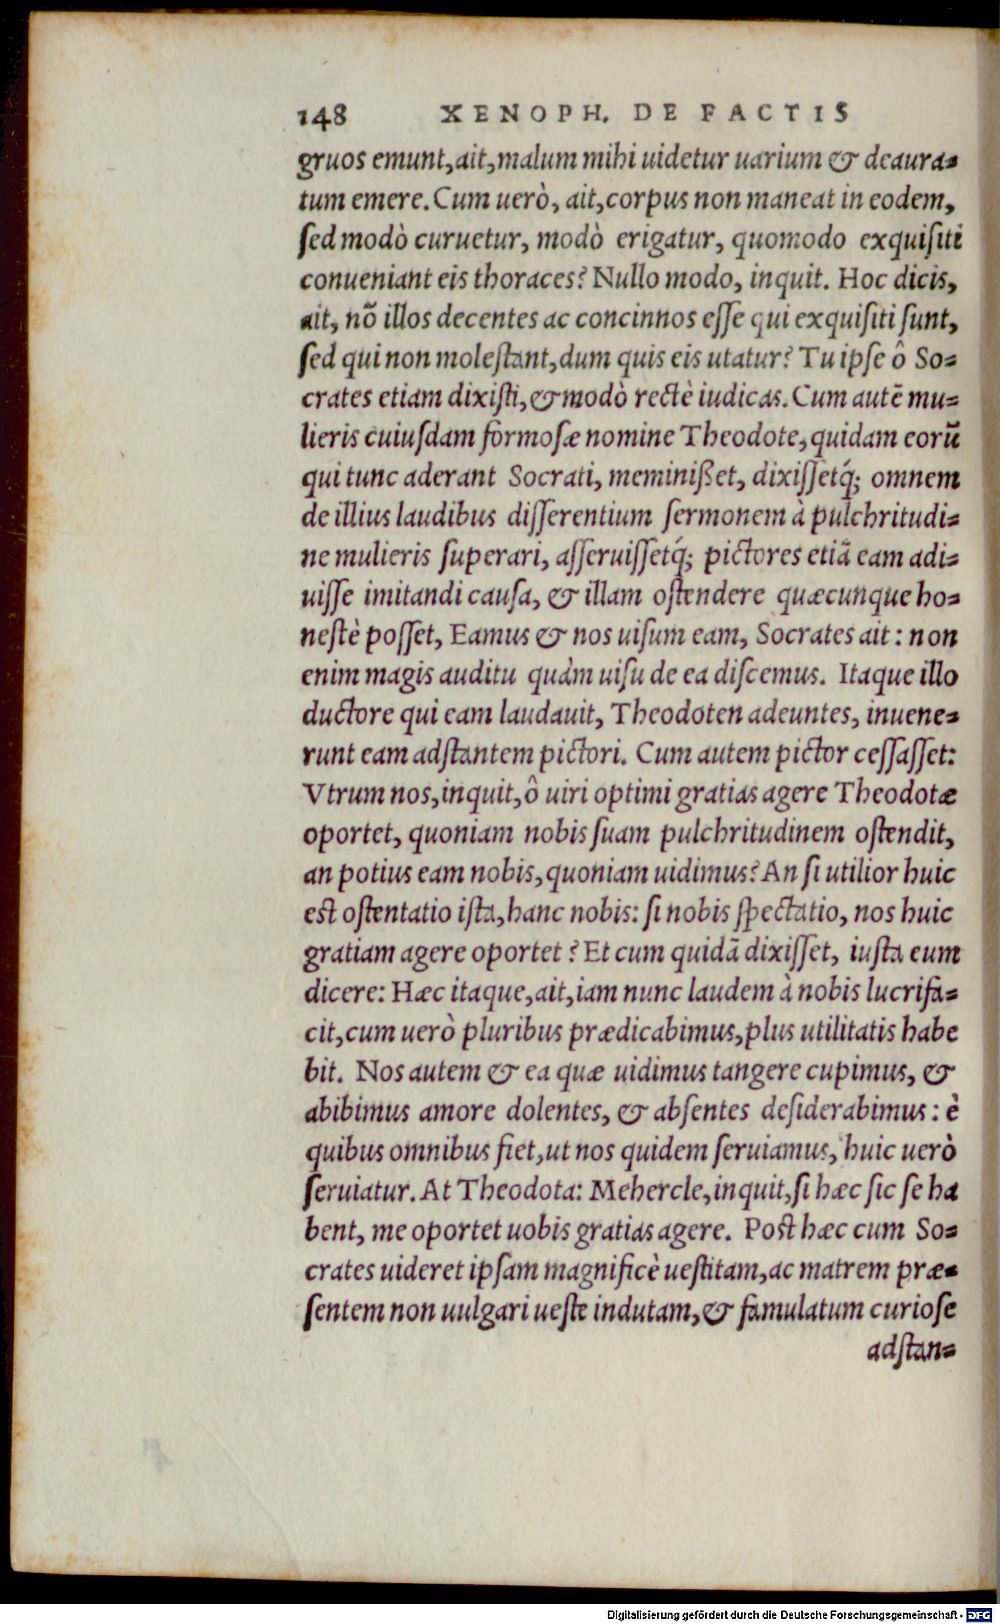 148 XENOPH. DE FACTIS
gruos emunt, ait, malum mihi uidetur uarium & deaura-
tum emere. Cum uerò, ait, corpus non maneat in eodem,
ſed modò curuetur, modò erigatur, quomodo exquiſiti
conueniant eis thoraces? Nullo modo, inquit. Hoc dicis,
ait, nõ illos decentes ac concinnos eſſe qui exquiſiti ſunt,
ſed qui non moleſtant, dum quis eis utatur? Tu ipſe ô So-
crates etiam dixiſti, & modò rectè iudicas. Cum autẽ mu-
lieris cuiuſdam formoſæ nomine Theodote, quidam eorũ
qui tunc aderant Socrati, meminißet, dixiſſetq́; omnem
de illius laudibus diſſerentium ſermonem à pulchritudi-
ne mulieris ſuperari, aſſeruiſſetq́; pictores etiã eam adi-
uiſſe imitandi cauſa, & illam oſtendere quæcunque ho-
neſtè poſſet, Eamus & nos uiſum eam, Socrates ait: non
enim magis auditu quàm uiſu de ea diſcemus. Itaque illo
ductore qui eam laudauit, Theodoten adeuntes, inuene-
runt eam adſtantem pictori. Cum autem pictor ceſſaſſet:
Vtrum nos, inquit, ô uiri optimi gratias agere Theodotæ
oportet, quoniam nobis ſuam pulchritudinem oſtendit,
an potius eam nobis, quoniam uidimus? An ſi utilior huic
eſt oſtentatio iſta, hanc nobis: ſi nobis ſpectatio, nos huic
gratiam agere oportet? Et cum quidã dixiſſet, iuſta eum
dicere: Hæc itaque, ait, iam nunc laudem à nobis lucrifa-
cit, cum uerò pluribus prædicabimus, plus utilitatis habe
bit. Nos autem & ea quæ uidimus tangere cupimus, &
abibimus amore dolentes, & abſentes deſiderabimus: è
quibus omnibus fiet, ut nos quidem ſeruiamus, huic uerò
ſeruiatur. At Theodota: Mehercle, inquit, ſi hæc ſic ſe ha
bent, me oportet uobis gratias agere. Poſt hæc cum So-
crates uideret ipſam magnificè ueſtitam, ac matrem præ-
ſentem non uulgari ueſte indutam, & famulatum curioſe
adſtan-
Digitalisierung gefördert durch die Deutsche Forschungsgemeinschaft - DFG